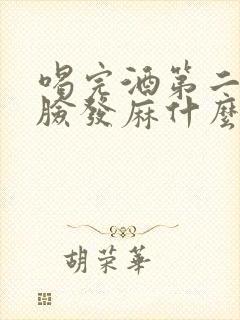 喝完酒第二
臉發麻什麼
胡荣華